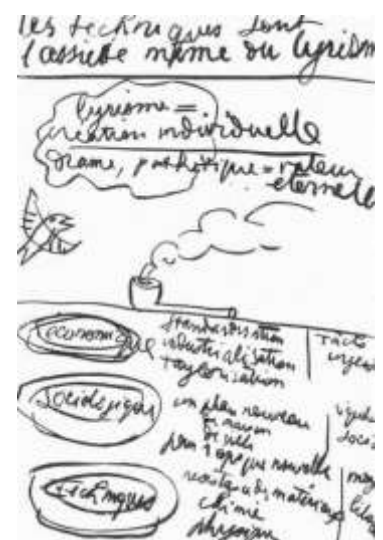 les techniques sont
l'assiette même du lyrism
lyrisme =
création individuelle
drame, pathétique = valeur
éternelle
économique
standardisation
industrialisation
taylorisation
sociologique
un plan nouveau
de maison
de ville
pour époque nouvelle
techniques
résistance des matériaux
chimie
physique